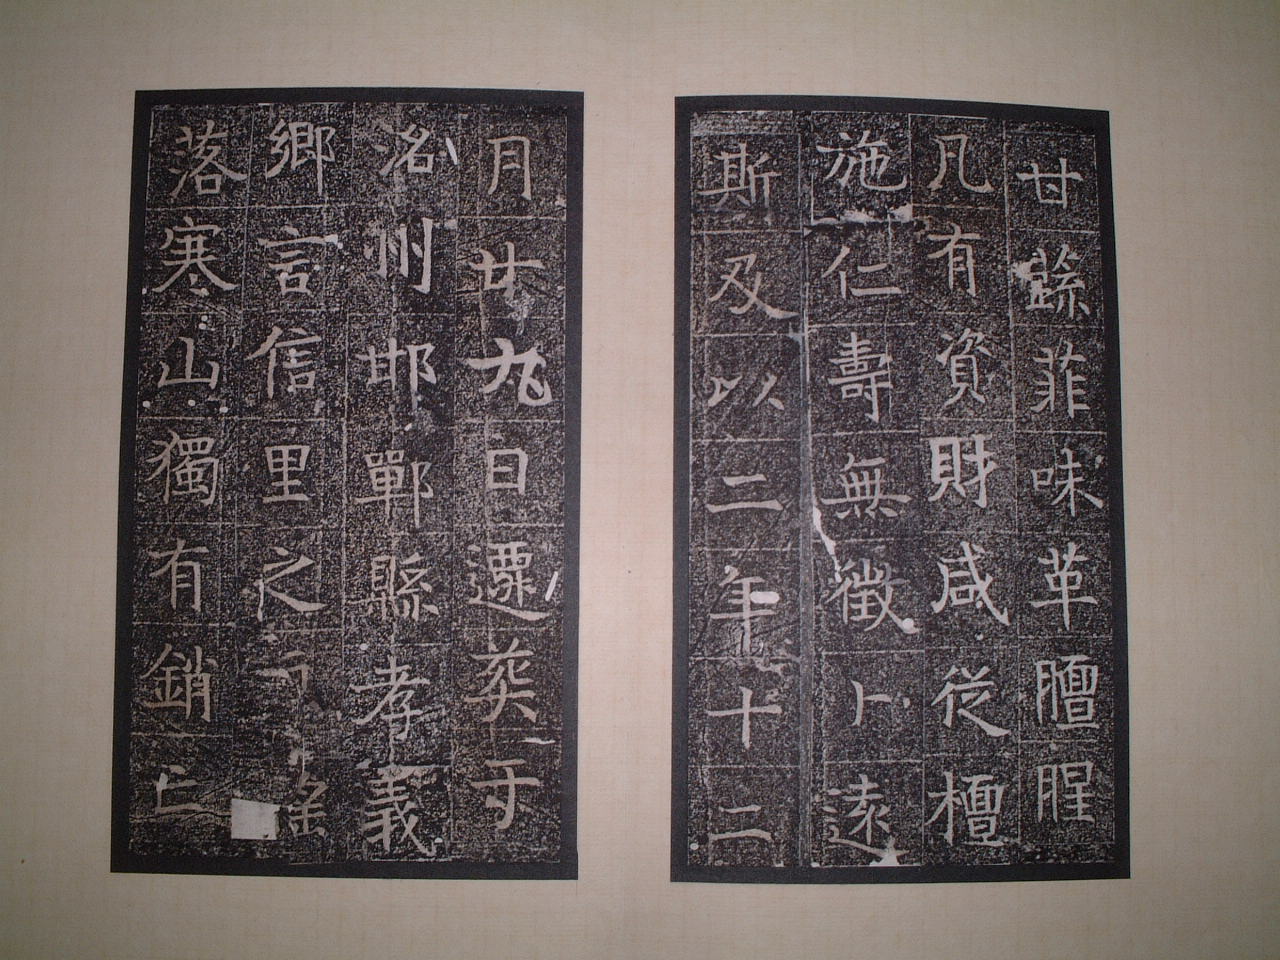 甘蔬菲味革膻腥
凡有資財咸從檀
施仁壽無徵卜遠
斯及以二年十二
月廿九日遷葬于
洺州邯鄲縣孝義
鄉言信里之
落寒山獨有銷亡